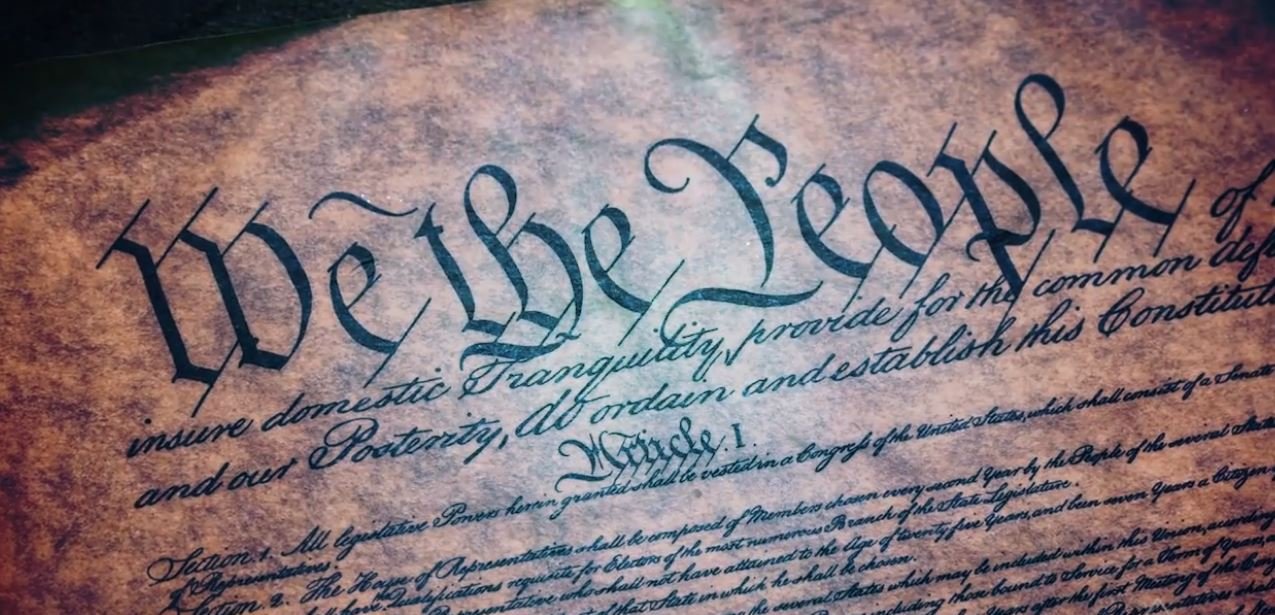 We the People of
insure domestic Tranquility, provide for the common
and our Posterity, do ordain and establish this Constituti
Article. I.
Section 1. All legislative Powers herein granted shall be vested in a Congress of the United States, which shall consist of a Senate
Representatives.
Section. 2. The House of Representatives shall be composed of Members chosen every second Year by the People of the several States
have Qualifications requisite for Electors of the most numerous Branch of the State Legislature.
Representative who shall not have attained to the Age of twenty five Years, and been seven Years a Citizen
of that State in which he shall be chosen.
the several States which may be included within this Union, according
including those bound to Service for a Term of Years,
Years after the first Meeting of the Cong